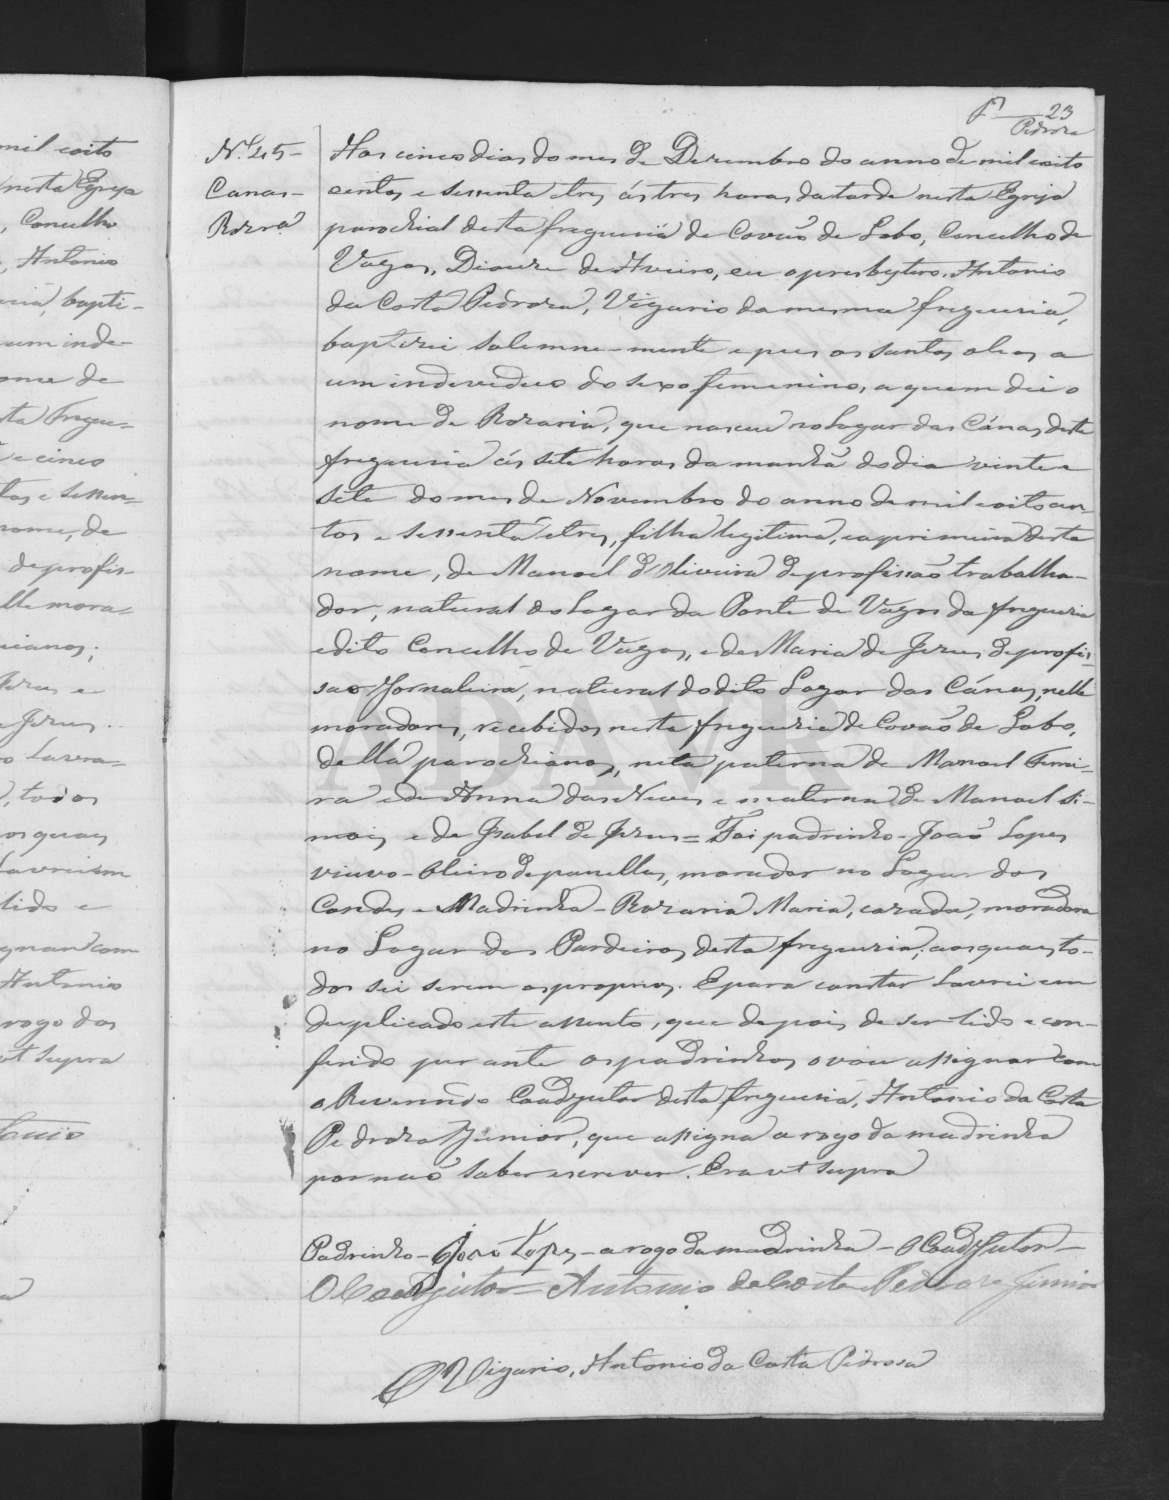 23
Pedroza
N.º 45-
Canas-
Rozra.
Aos cinco dias do mes de Dezembro do anno de mil oito
centos e sessenta e tres, ás tres horas da tarde nesta Egreja
parochial desta freguezia de Covão de Lobo, Concelho de
Vagos, Dioceze de Aveiro, eu o presbytero, Antonio
da Costa Pedroza, Vigario da mesma freguezia,
baptizei solemne-mente e puz os santos oleos a
um individuo do sexo femenino, a quem dei o
nome de Rozaria, que nasceu no Lugar das Cánas desta
freguezia ás sete horas da manhã do dia vinte e
sete do mes de Novembro do anno de mil oito cen-
tos e sessenta e tres, filha legitima, e a primeira deste
nome, de Manoel d'Oliveira de profissão trabalha-
dor, natural do Lugar da Ponte de Vagos da freguezia
e dito Concelho de Vagos, e de Maria de Jezus de profis-
sao Jornaleira, natural do dito Lugar das Cánas, nelle
moradores, recebidos nesta freguezia de Covão de Lobo,
della parochianos, neta paterna de Manoel Ferrei-
ra e de Anna das Neves e materna de Manoel Si-
mois e de Izabel de Jezus = Foi padrinho - João Lopes
viuvo - Oleiro de panellas, morador no Lugar dos
Condes e Madrinha - Rozaria Maria, cazada, moradora
no Lugar dos Pardeiros desta freguezia, aos quaes to-
dos sei serem os proprios. E para constar lavrei em
duplicado este assento, que depois de ser lido e con-
ferido perante os padrinhos o vou assignar com
o Reverendo Coadjutor desta freguezia, Antonio da Costa
Pedroza Junior, que assigna a rogo da madrinha
por não saber escrever. Era ut supra
Padrinho - João Lopes - a rogo da madrinha - O Coadjutor -
O Coadjutor = Antonio da Costa Pedroza Junior
O Vigario, Antonio da Costa Pedroza
mil oito
nesta Egreja
, Concelho
, Antonio
bapti-
um indi-
nome de
sta Fregue-
e cinco
tos e sessen-
nome, de
de profis-
lle mora-
chianos;
Jezus e
Jezus.
Lavra-
, todos
os quaes
lavrei em
lido e
com
Antonio
rogo dos
ut supra
ADAVR